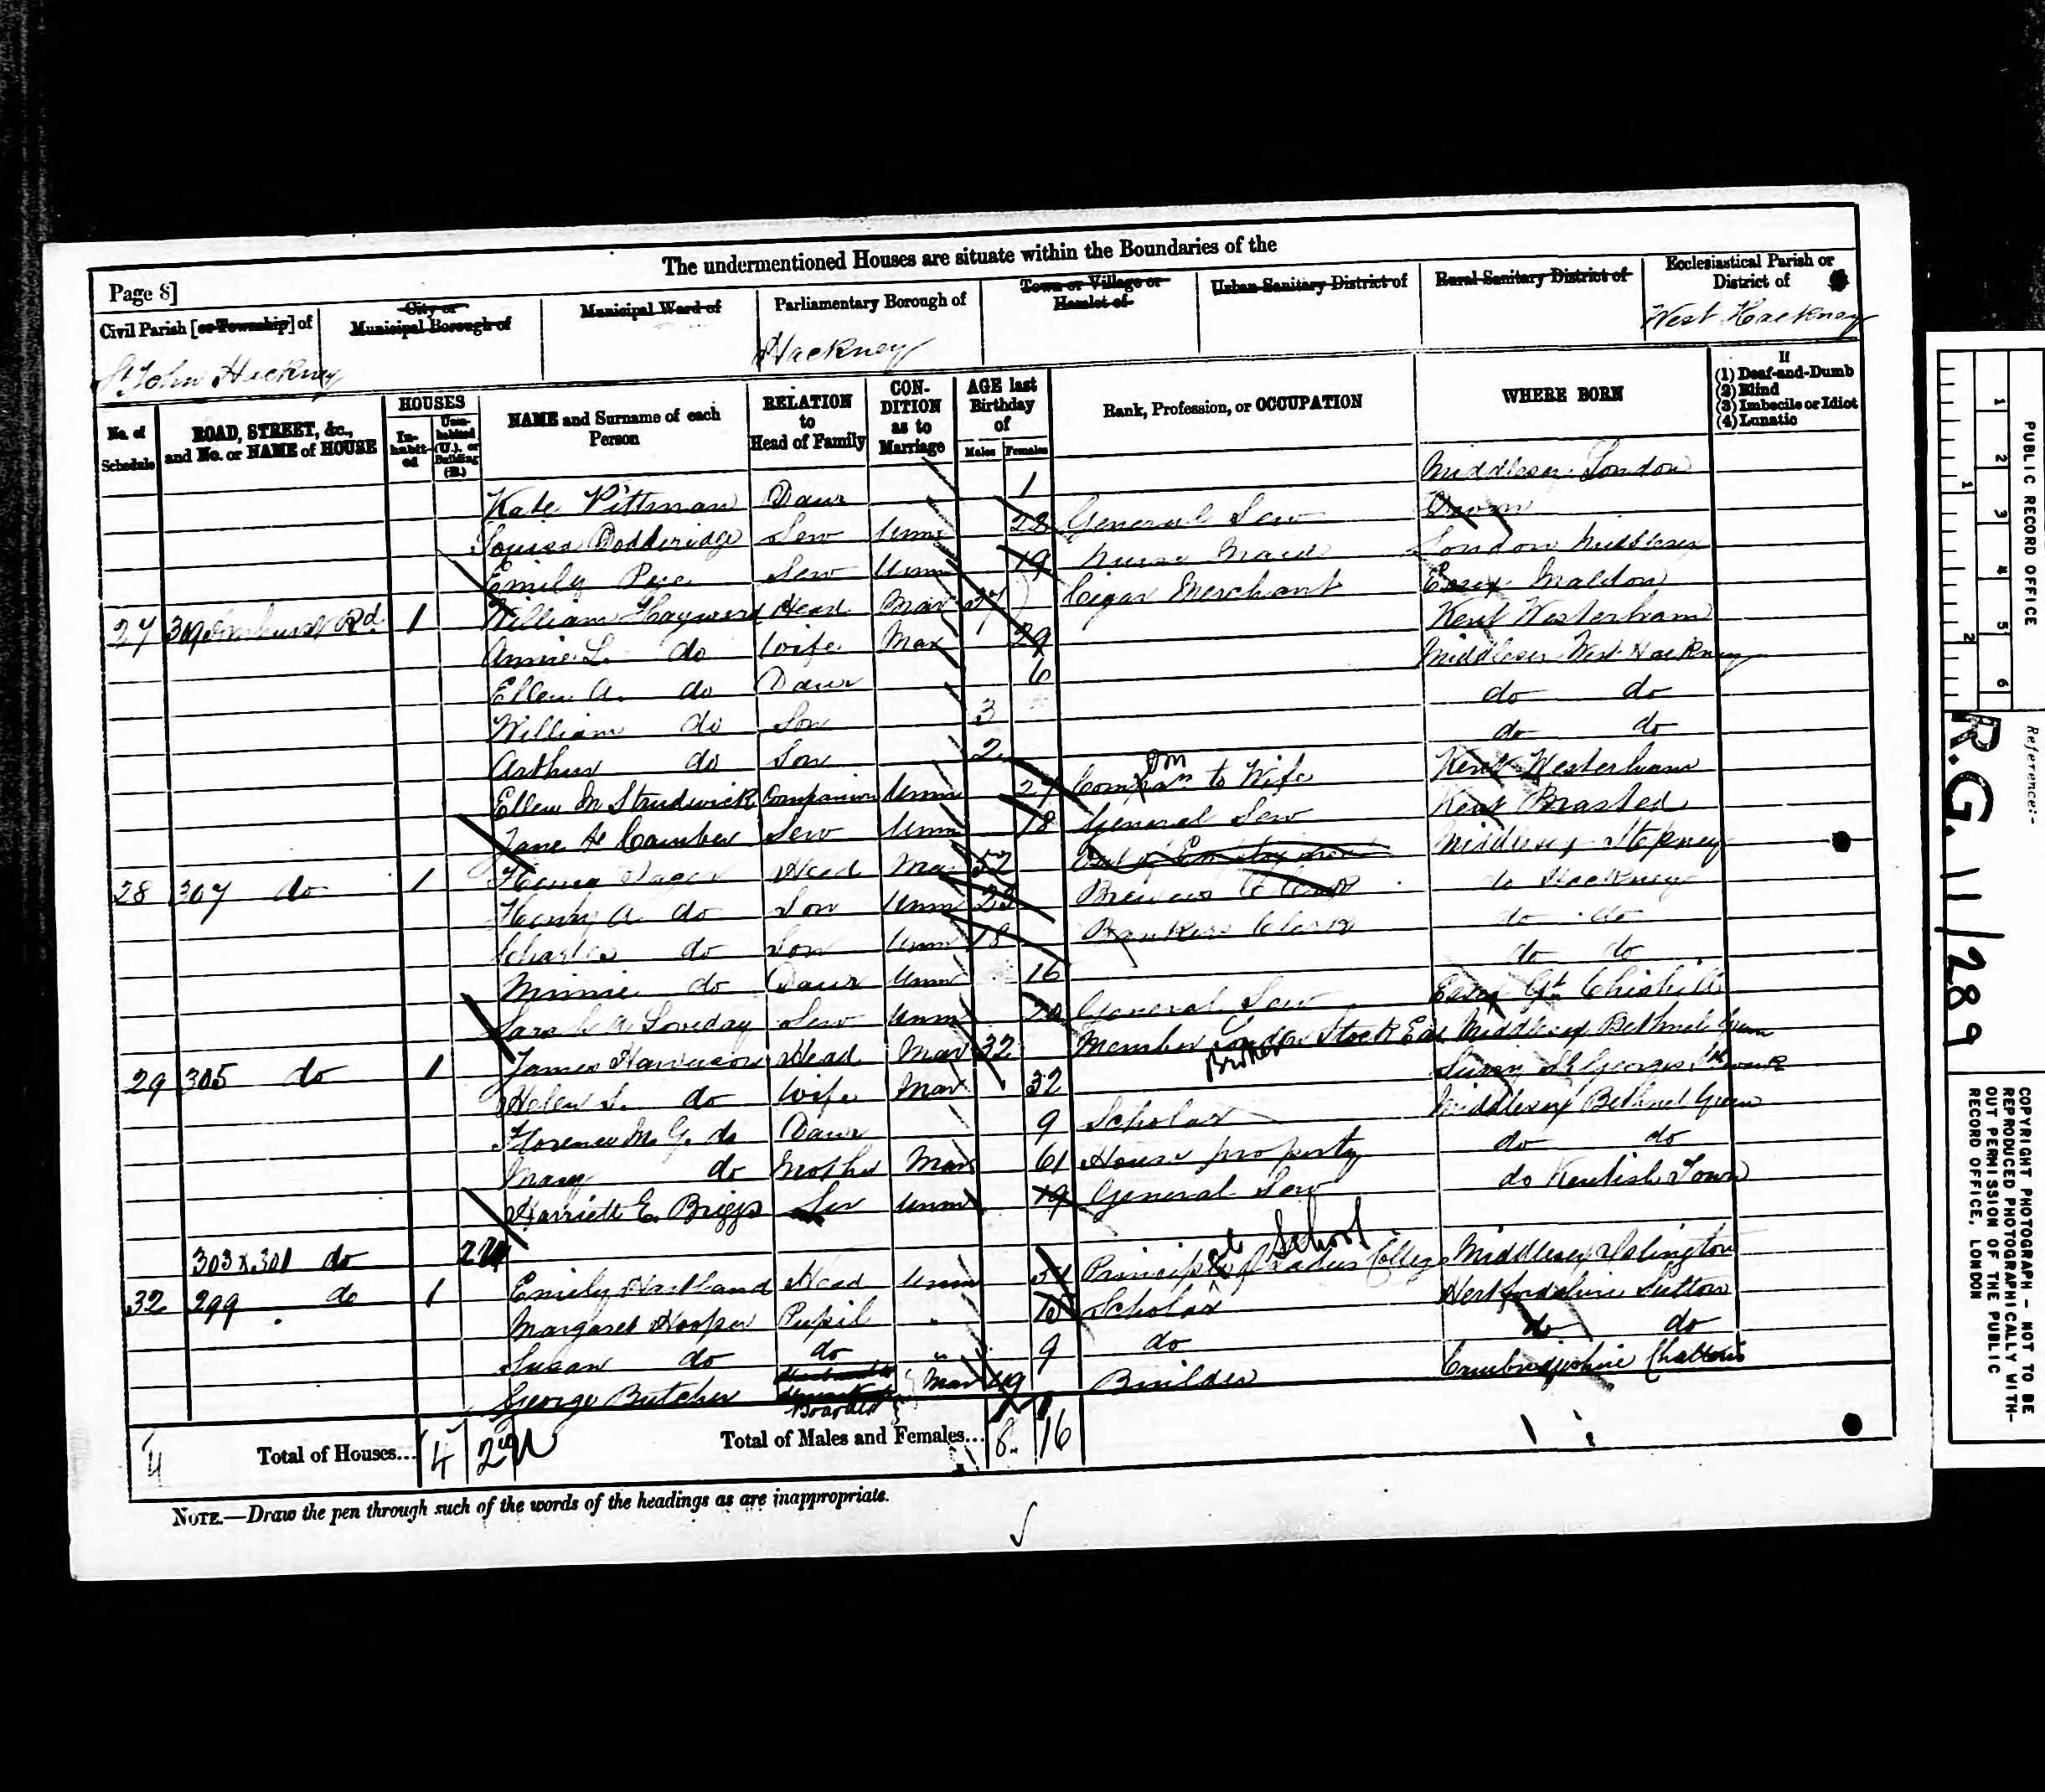 The undermentioned Houses are situate within the Boundaries of the
Page 8]
Civil Parish [or Township] of
City or Municipal Borough of
Municipal Ward of
Parliamentary Borough of
Town or Village or Hamlet of
Urban Sanitary District of
Rural Sanitary District of
Ecclesiastical Parish or District of
St John Hackney
Hackney
West Hackney
No. of Schedule
ROAD, STREET, &c., and No. or NAME of HOUSE
HOUSES
In-habit-ed
Unin-habited (U.), or Building (B.)
NAME and Surname of each Person
RELATION to Head of Family
CON-DITION as to Marriage
AGE last Birthday of
Males Females
Rank, Profession, or OCCUPATION
WHERE BORN
If
(1) Deaf-and-Dumb
(2) Blind
(3) Imbecile or Idiot
(4) Lunatic
Kate Pittman Daur 1 Middlesex London
Louisa Dodderidge Serv Unm 28 General Serv Devon
Emily Pye Serv Unm 19 Nurse Maid London Middlesex
27 309 Rd 1 William Hayward Head Mar 27 Cigar Merchant Essex Maldon
Annie L. do Wife Mar 29 Kent Westerham
Ellen A. do Daur 6 Middlesex West Hackney
William do Son 3 do do
Arthur do Son 2 do do
Ellen M Strudwick Companion Unm 27 to Wife Kent Westerham
Jane A Camber Serv Unm 18 General Serv Kent Brasted
28 307 do 1 Henry Mar 52 Out of Employment Middlesex Stepney
Henry A do Son Unm 23 Brewers Clerk do Hackney
Charles do Son Unm 18 Bankers Clerk do do
Minnie do Daur Unm 16 do do
Sarah A Loveday Serv Unm 20 General Serv Essex Gt Chishill
29 305 do 1 James Harrison Head Mar 32 Member London Stock Exc Middlesex Bethnal Green
Broker
Helen S. do Wife Mar 32 Surrey St Georges
Florence M. G. do Daur 9 Scholar Middlesex Bethnal Green
Mary do Mother Mar 61 House property do do
Harriett E. Briggs Ser Unm 19 General Serv do Kentish Town
303 & 301 do 2 U
32 299 do 1 Emily Hartland Head Unm Principal of Ladies College School Middlesex Islington
Margaret Hooper Pupil " Scholar Hertfordshire Sutton
Susan do do " 9 do do do
George Butcher Boarder Mar 49 Builder Cambridgeshire Chatteris
4 Total of Houses... 4 2 U Total of Males and Females... 8 16
NOTE.—Draw the pen through such of the words of the headings as are inappropriate.
PUBLIC RECORD OFFICE
1 2 3 4 5 6
1 2
Reference:-
R.G. 11/289
COPYRIGHT PHOTOGRAPH - NOT TO BE
REPRODUCED PHOTOGRAPHICALLY WITH-
OUT PERMISSION OF THE PUBLIC
RECORD OFFICE, LONDON